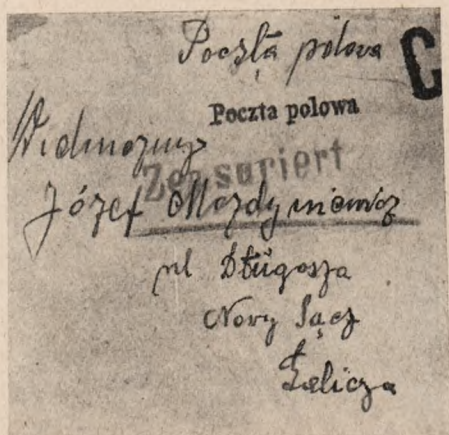 Pocztą polova
C
Poczta polowa
Wielmożny
Zensuriert
Józef Mozdyniewicz
ul Długosza
Nowy Sącz
Galicza